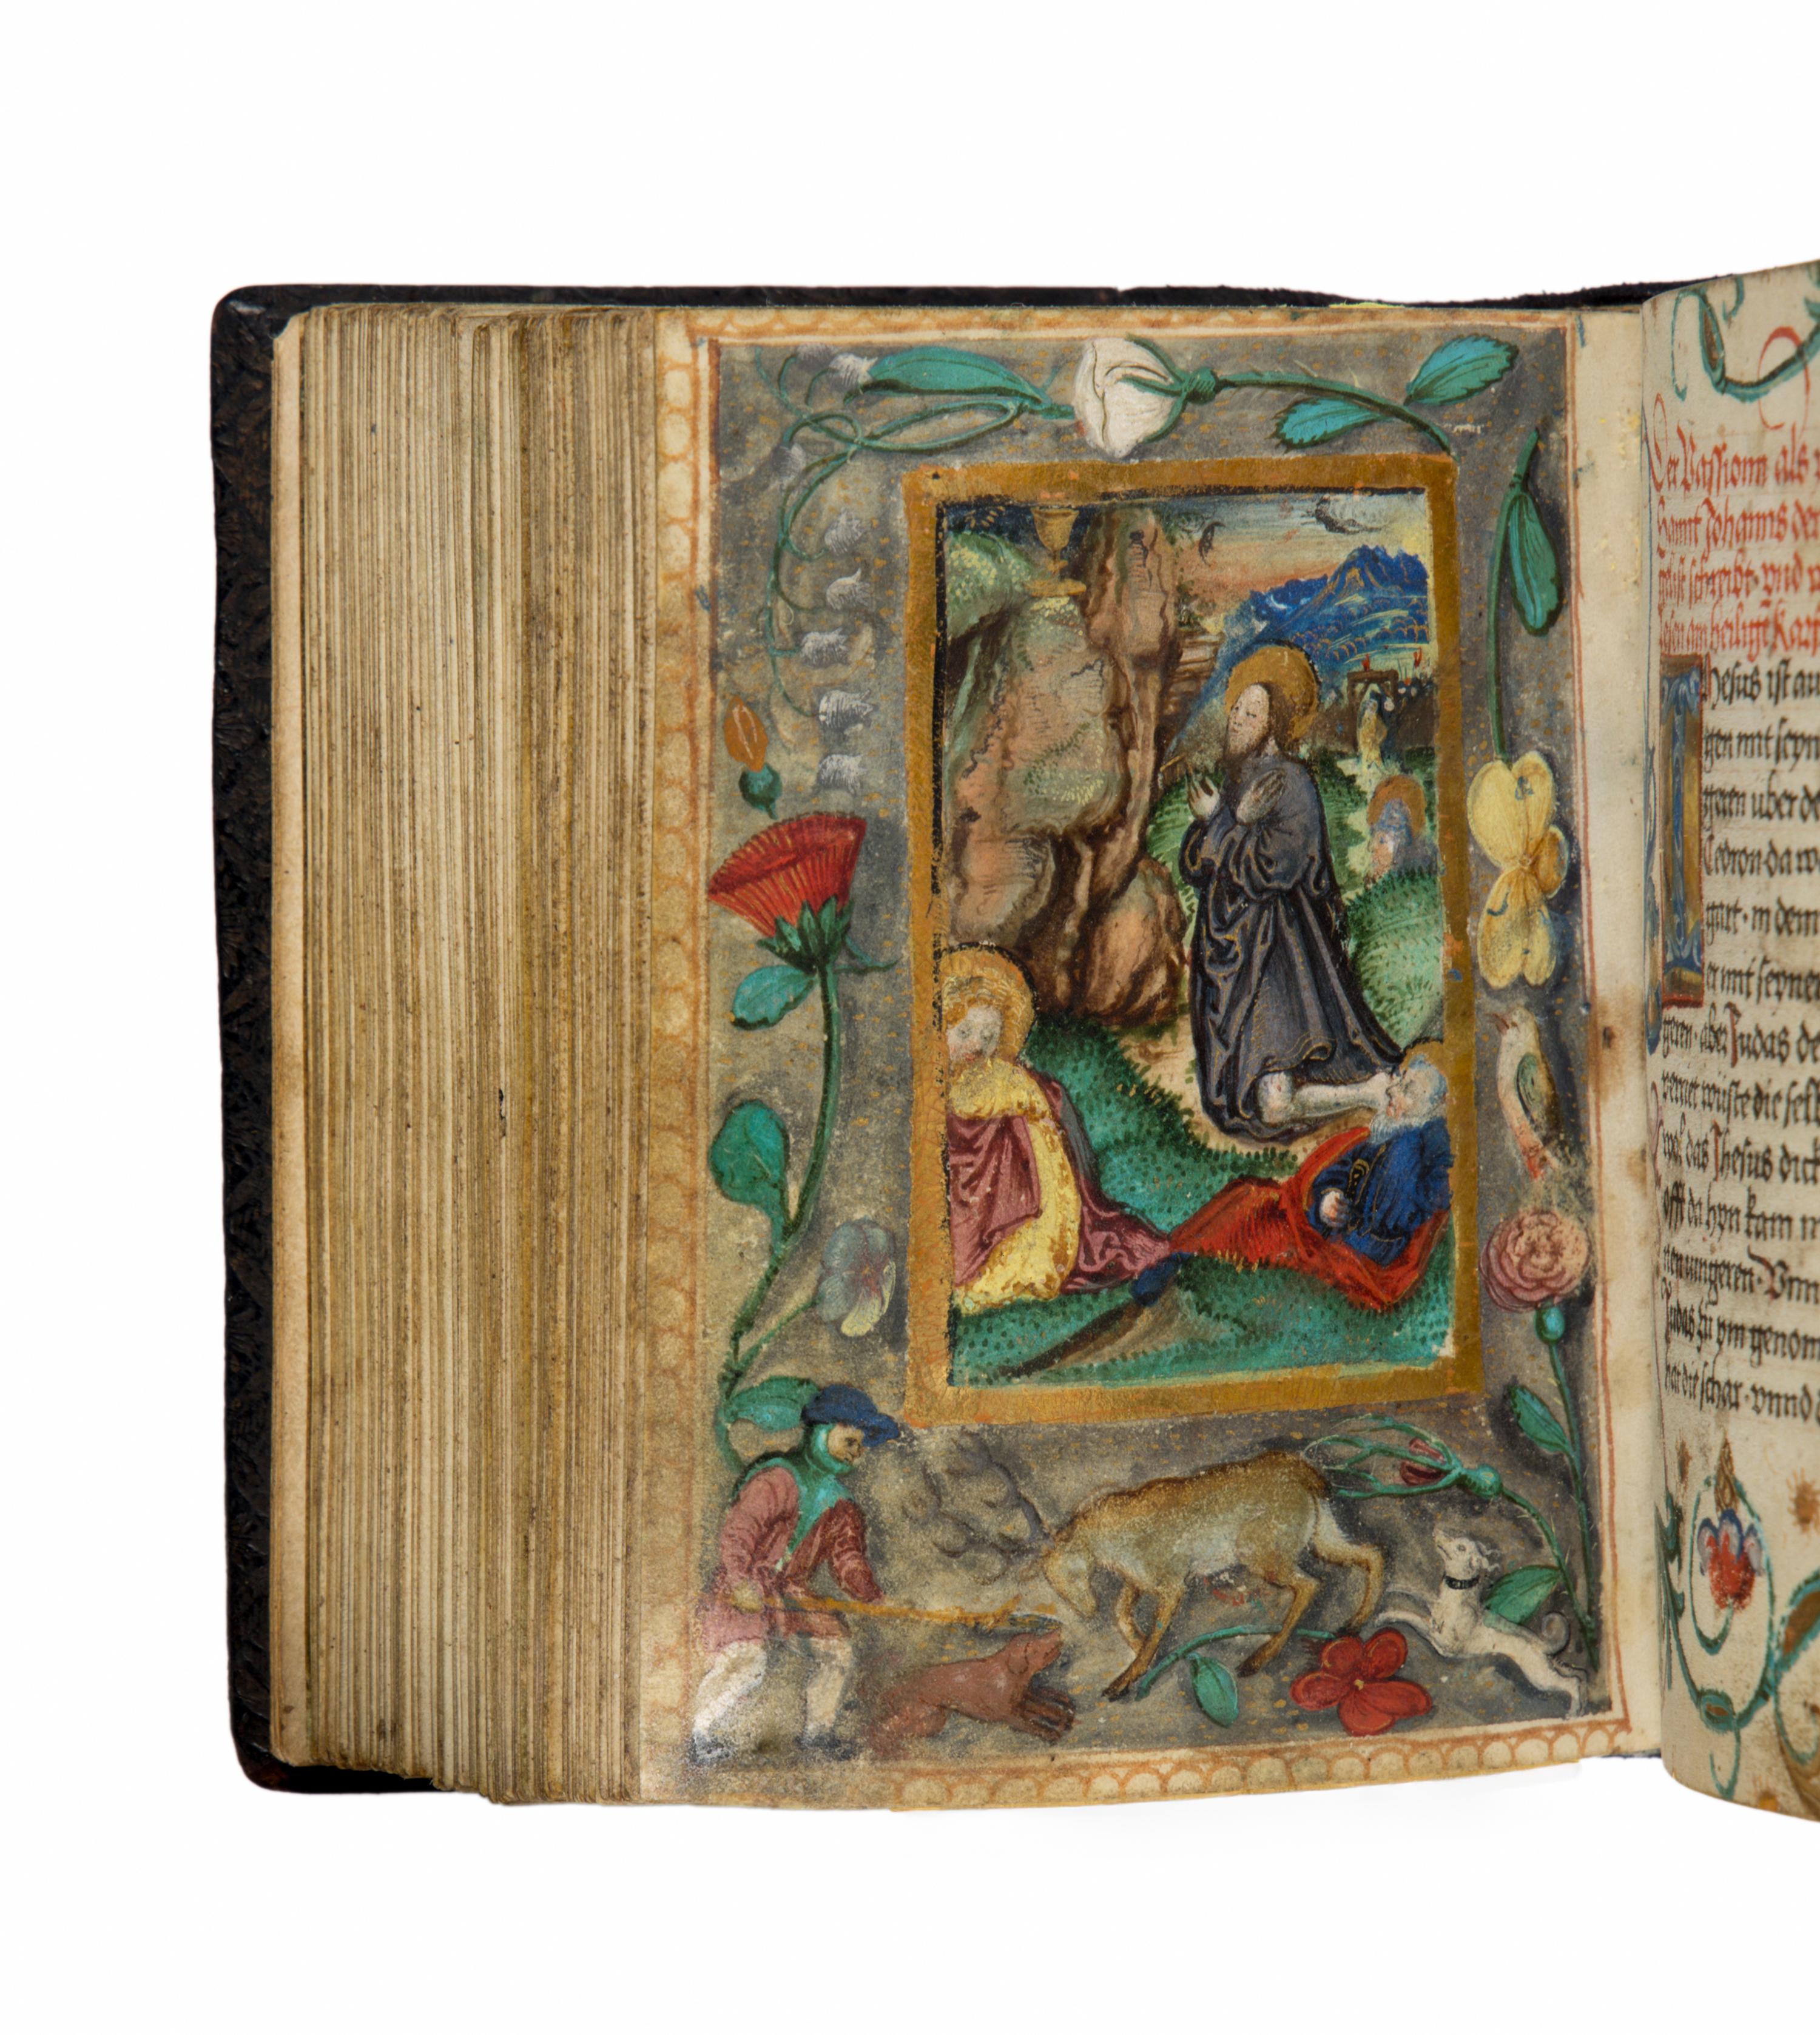 Der Passionn als
Sannt Johanns der
gelist schreibt. vnd
lesen am heiligē Kar
Ihesus ist au
gen mit seyn
geren uber de
Cedron. da
gart. in dem
er mit seyne
geren. aber Judas de
vernet wuste die sel
wol das Jhesus dick
offt da hyn kam
nen iungeren. Vnn
Judas zu ym genom
har die schar. vnnd